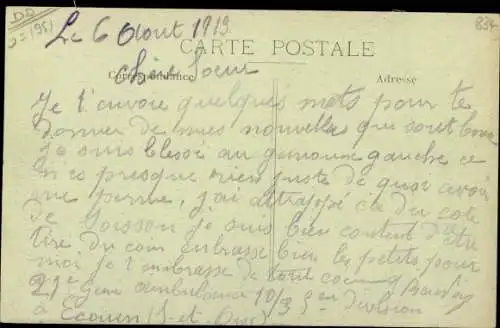 DD
834
Le 6 Aout 1919
CARTE POSTALE
Correspondance
Adresse
chère Soeur
Je t'envoie quelques mots pour te
donner de mes nouvelles qui sont bonne
je suis blessé au genoux gauche ce
n'es presque rien juste de quoi avoir
une perme, j'ai attrappé ca du coté
de Soisson je suis bien content d'être
tire du coin embrasse bien les petits pour
moi je t'embrasse de tout coeur
21e ambulance 10/3 3en division
à Ecouen (S-et-Oise)